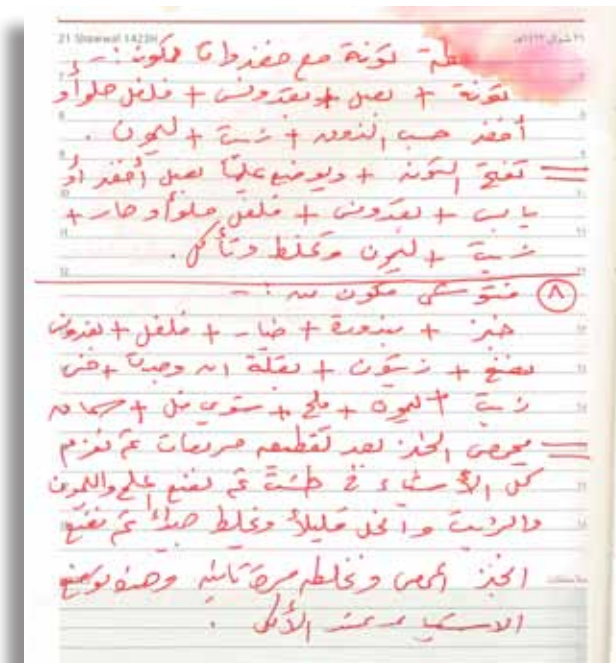 21 Shawwal 1423H ٢١ شوال ١٤٢٣هـ
تونة مع خضروات مكون :-
تونة + بصل + بقدونس + فلفل حلو أو
أخضر حسب الذوق + زيت + ليمون .
= تفتح التونة + ويوضع عليها بصل أخضر أو
يابس + بقدونس + فلفل حلو أو حار +
زيت + ليمون وتخلط وتأكل .
٨ فتوش مكون من :-
خبز + بندورة + خيار + فلفل + بقدونس
نعنع + زيتون + بقلة ان وجدت + خس
زيت + ليمون + ملح + خل + سماق
= يحمص الخبز بعد تقطيعه مربعات ثم تفرم
كل الأشياء في طشت ثم نضع الملح والليمون
والزيت والخل قليلاً وتخلط جيداً ثم نضع
الخبز المحمص ونخلطه مرة ثانية وهذه توضع
الأكل .